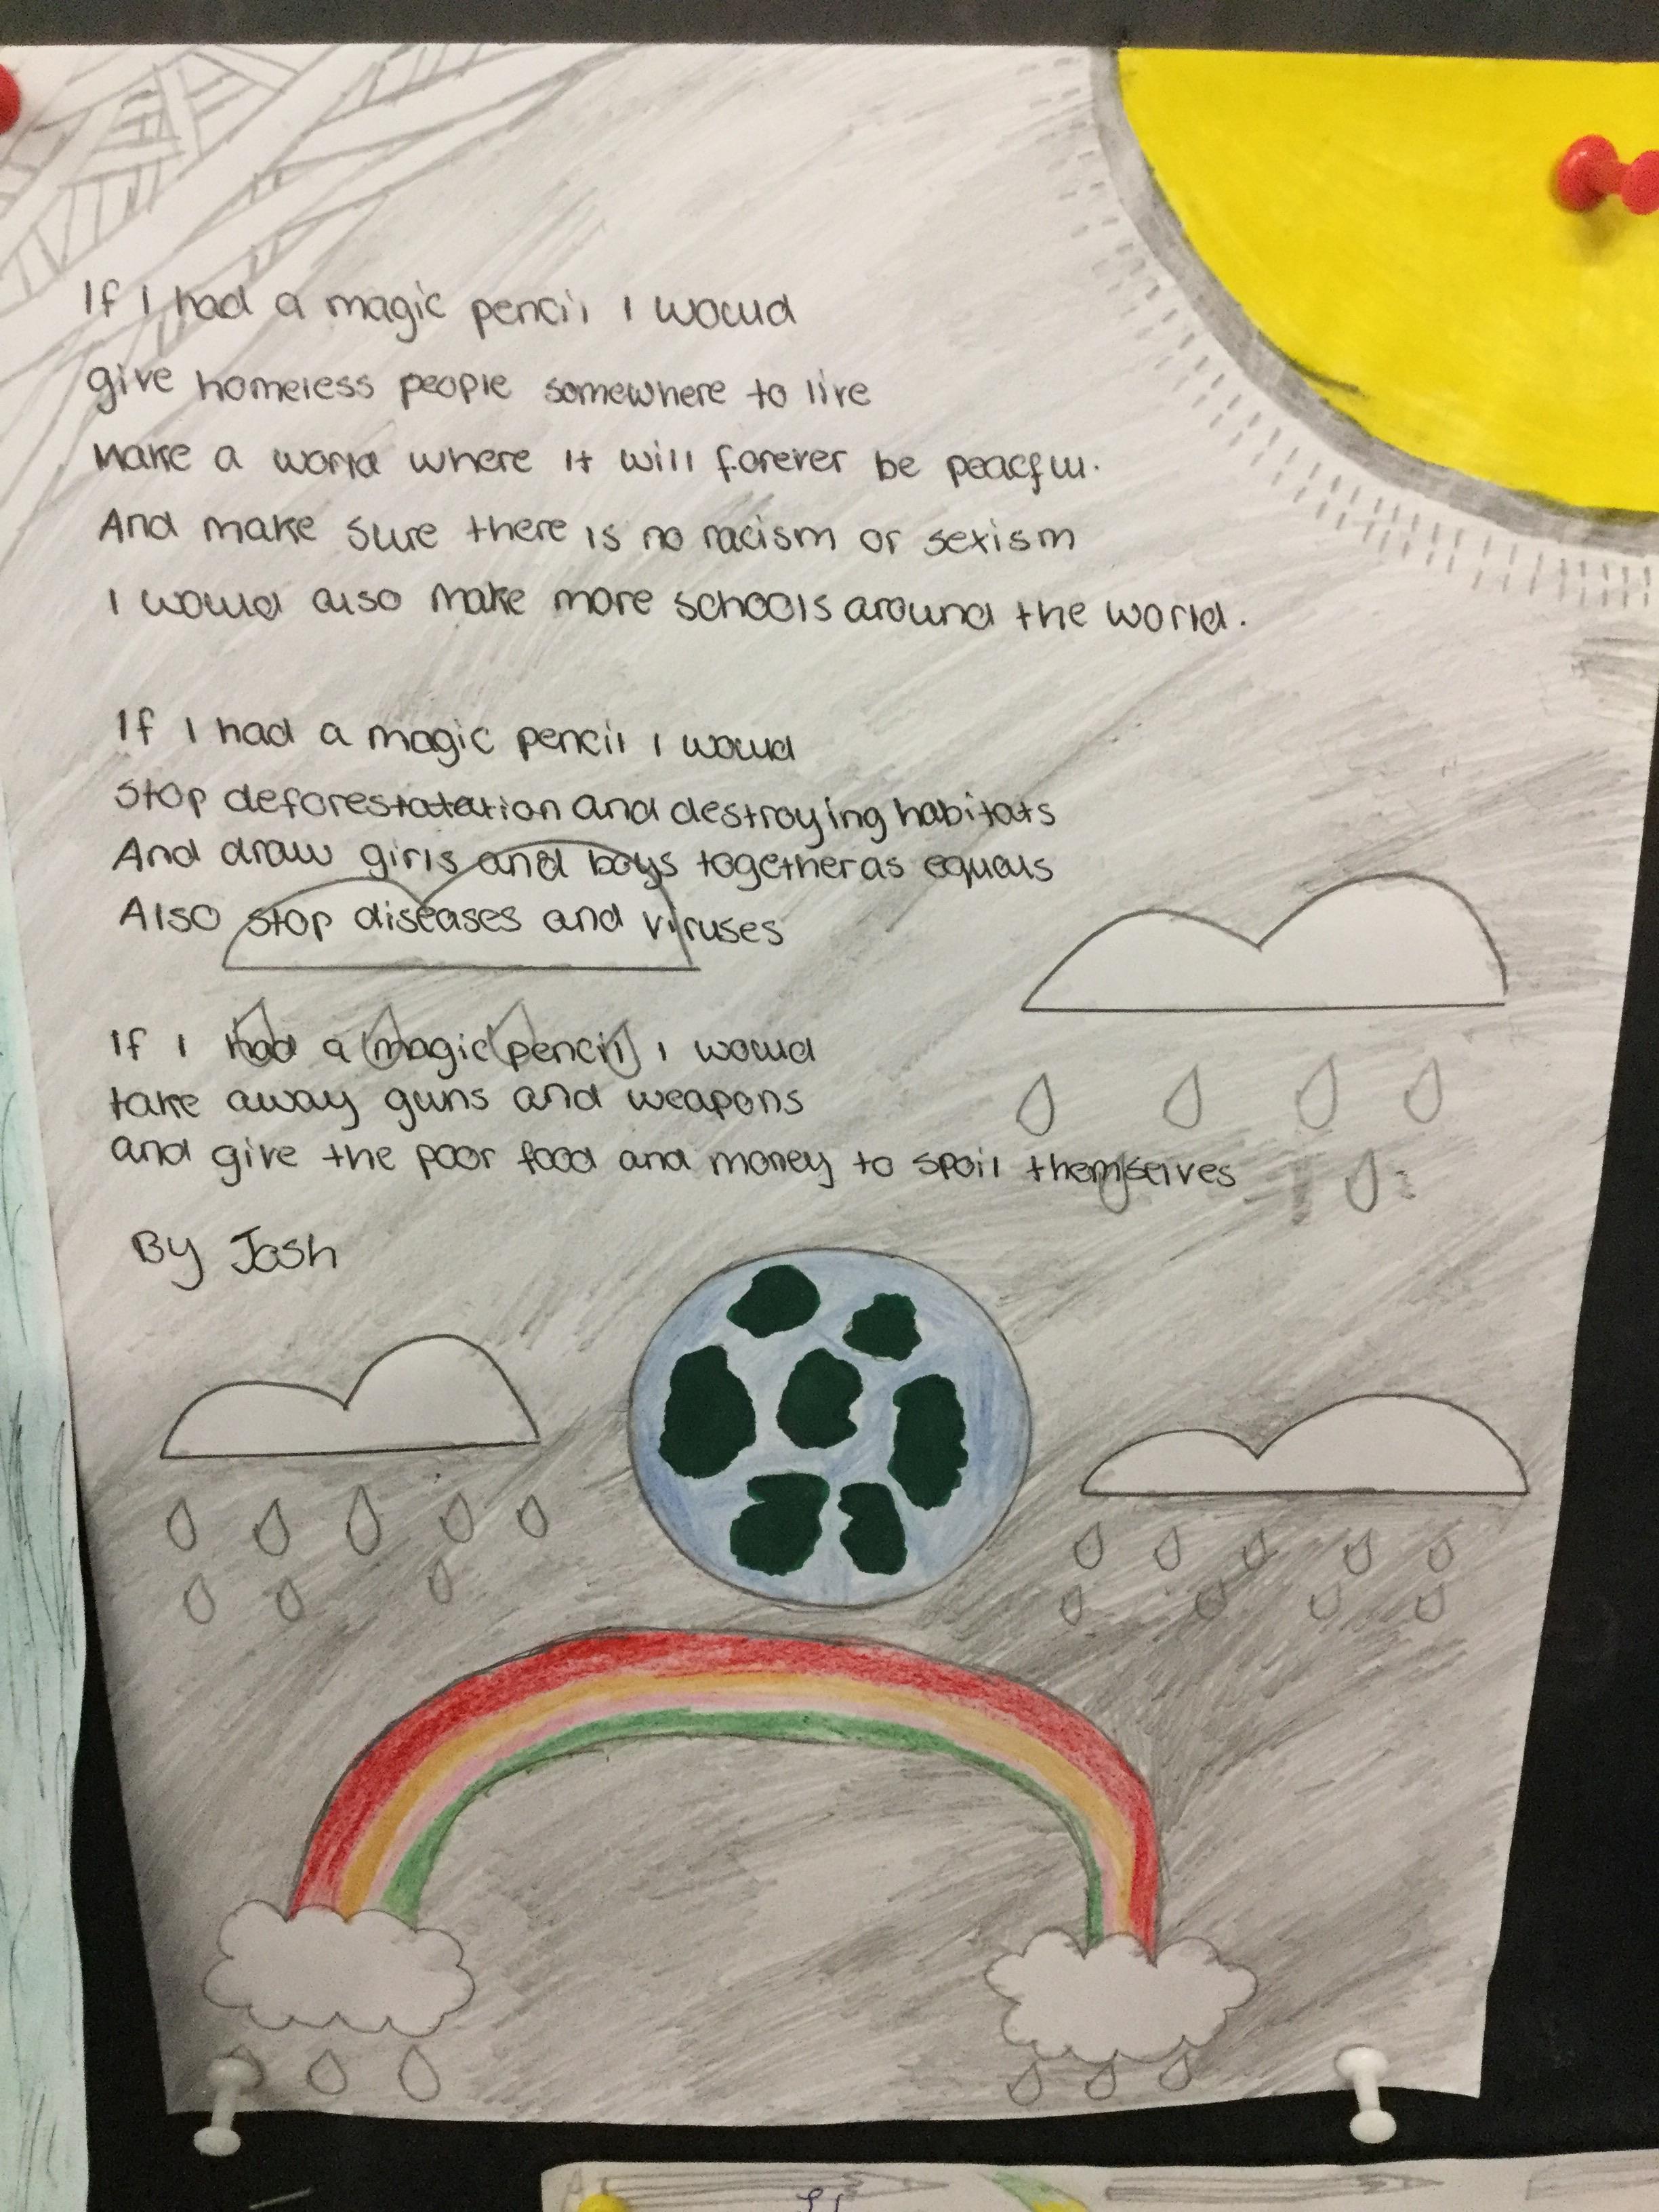 If I had a magic pencil I would
give homeless people somewhere to live
Make a world where it will forever be peacful.
And make sure there is no racism or sexism
I would also make more schools around the world.
If I had a magic pencil I would
Stop deforestatation and destroying habitats
And draw girls and boys together as equals
Also stop diseases and viruses
If I had a magic pencil I would
take away guns and weapons
and give the poor food and money to spoil themselves
By Josh